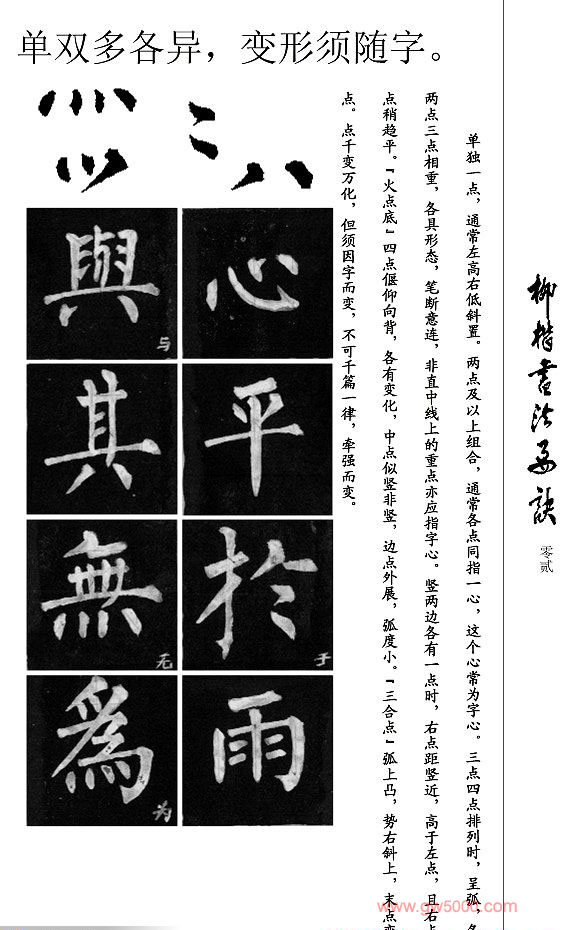 单双多各异，变形须随字。
柳楷書法要訣
零贰
单独一点，通常左高右低斜置。两点及以上组合，通常各点同指一心，这个心常为字心。三点四点排列时，呈弧，
两点三点相重，各具形态，笔断意连，非直中线上的重点亦应指字心。竖两边各有一点时，右点距竖近，高于左点，且右
点稍趋平。『火点底』四点偃仰向背，各有变化，中点似竖非竖，边点外展，弧度小。『三合点』弧上凸，势右斜上，末点
点。点千变万化，但须因字而变，不可千篇一律，牵强而变。
心
平
於 于
雨
與 与
其
無 无
爲 为
www.gw500d.com